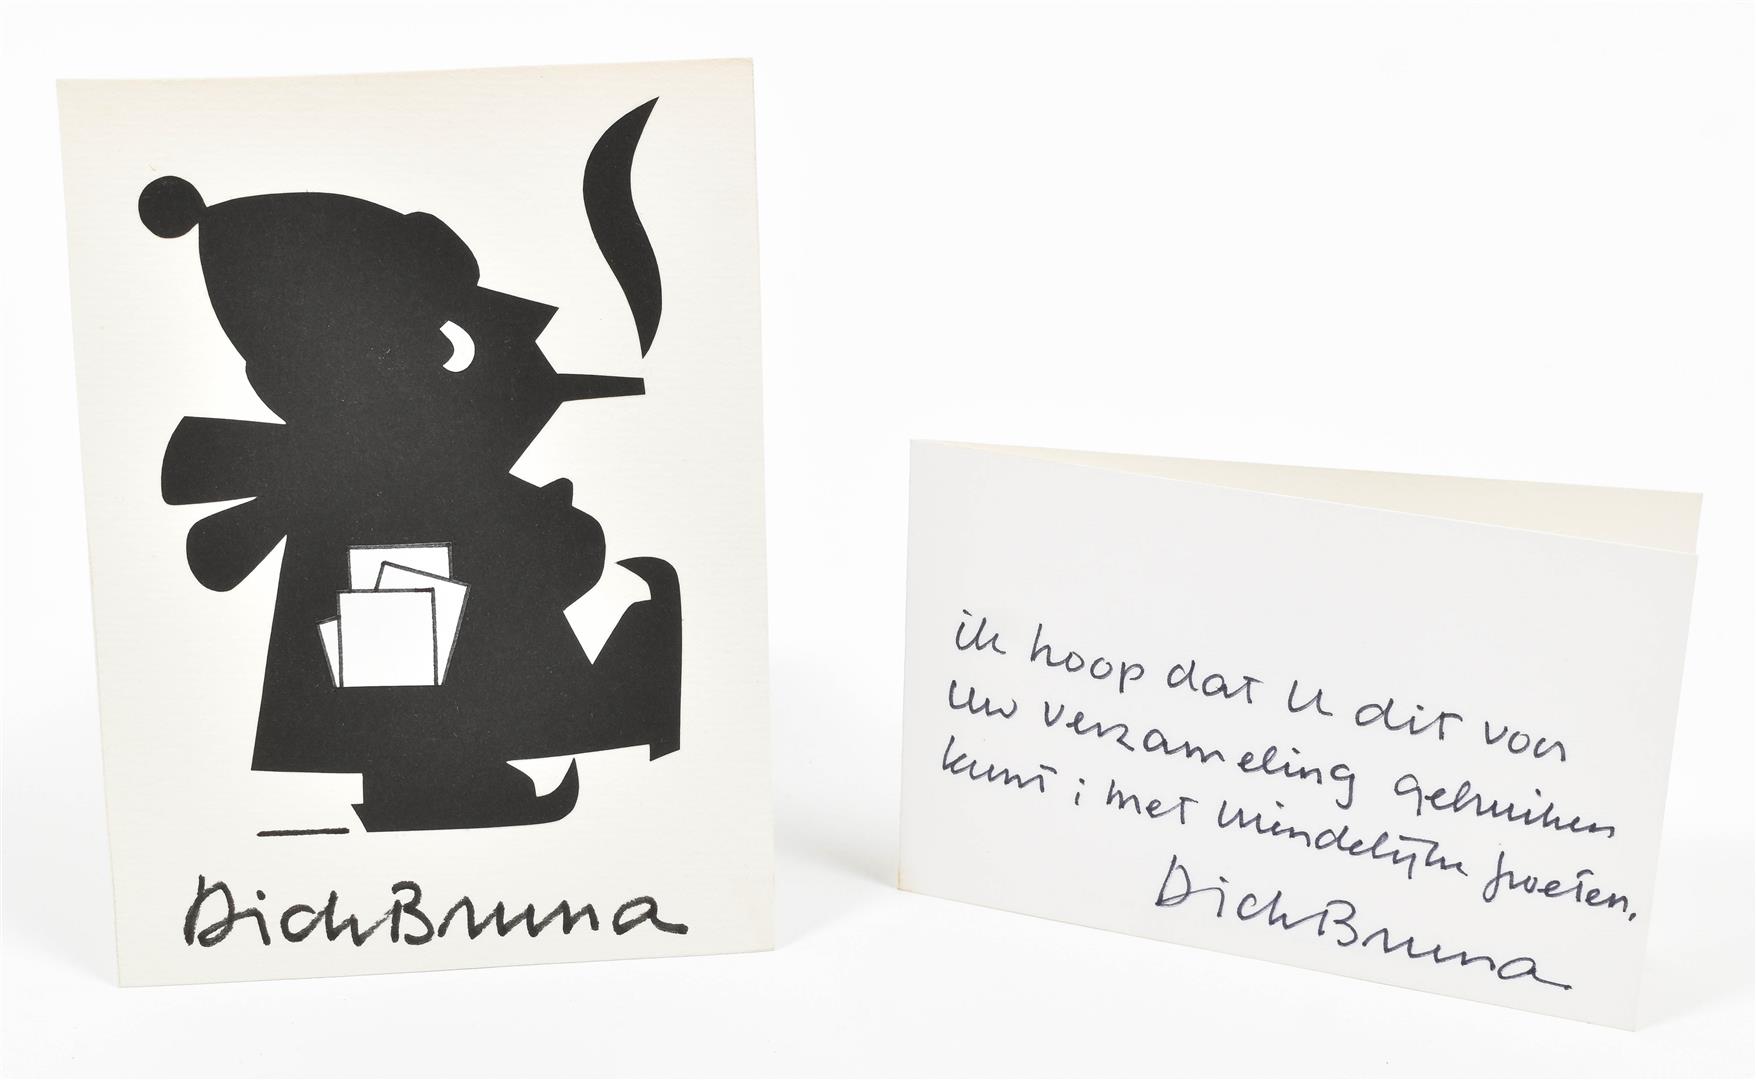 Dick Bruna
ik hoop dat U dit voor
Uw verzameling gebruiken
kunt; met vriendelijke groeten,
Dick Bruna